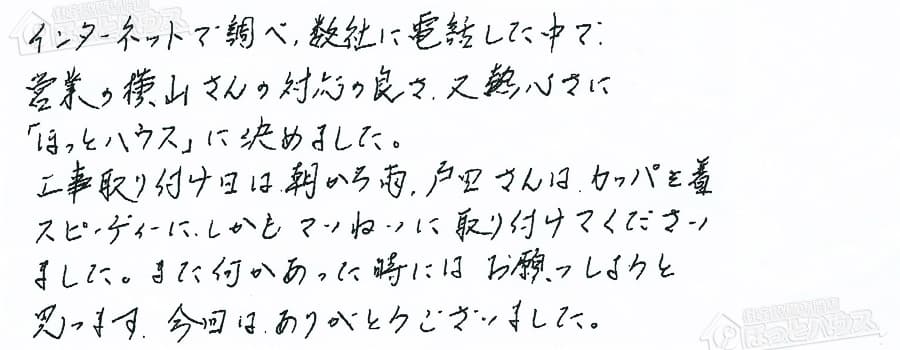 インターネットで調べ、数社に電話した中で、
営業の横山さんの対応の良さ、又熱心さに
「ほっとハウス」に決めました。
工事取り付け日は、朝から雨、戸田さんは、カッパを着
スピーディーに、しかもていねいに取り付けてください
ました。また何かあった時にはお願いしようと
思います。今回は、ありがとうございました。
ほっとハウス